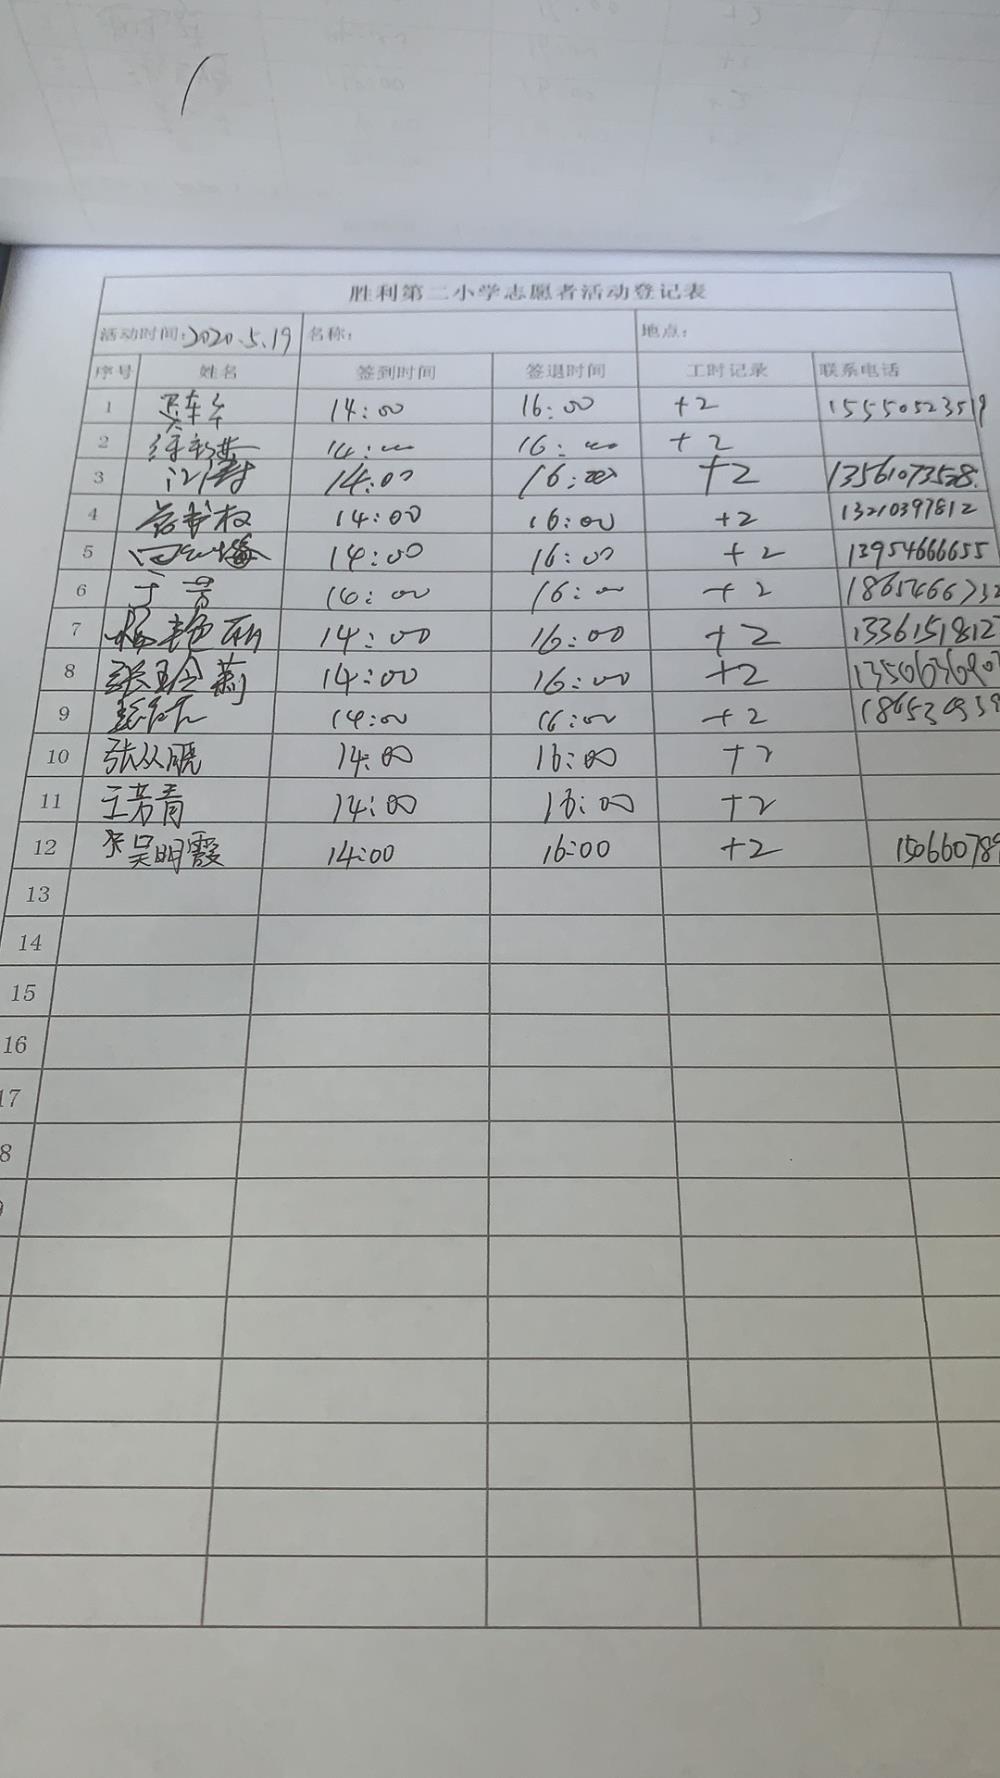 胜利第二小学志愿者活动登记表
活动时间:2020.5.19 名称: 地点:
序号 姓名 签到时间 签退时间 工时记录 联系电话
1 14:00 16:00 +2 15550523519
2 14:00 16:00 +2
3 14:00 16:00 +2 13561073528
4 14:00 16:00 +2 13210397812
5 14:00 16:00 +2 13954666655
6 于芳 14:00 16:00 +2 1865466732
7 杨艳丽 14:00 16:00 +2 1336151812
8 张玉玲莉 14:00 16:00 +2 1350636907
9 14:00 16:00 +2
10 张从晓 14:00 16:00 +2
11 王芳青 14:00 16:00 +2
12 吴明霞 14:00 16:00 +2 150660789
13
14
15
16
17
8